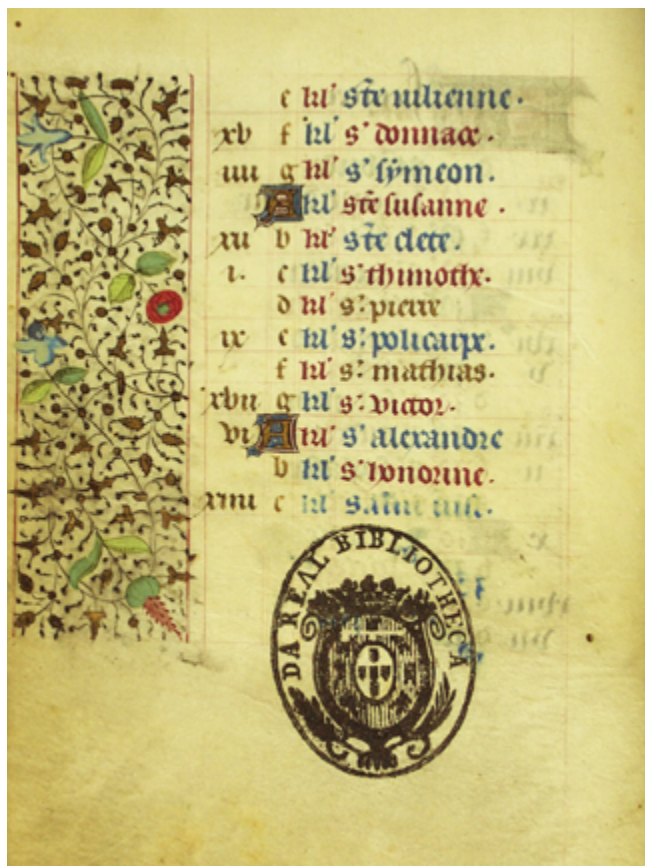 e kl' ste iulienne.
xv f kl' s' donnace.
iiii g kl' s' symeon.
A kl' ste susanne.
xii b kl' ste clete.
i. c kl' s' thimothe.
d kl' s' pierre
ix e kl' s' policarpe.
f kl' s' mathias.
xvii g kl' s' victor.
vi A kl' s' alexandre
b kl' s' honorine.
xiiii c kl' saint iust.
DA REAL BIBLIOTHECA